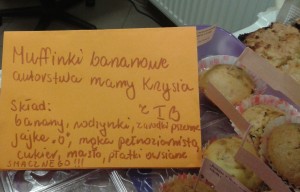 Muffinki bananowe
autorstwa mamy Krzysia
z IB
Skład:
banany, rodzynki, zarodki pszenne
jajka "0", mąka pełnoziarnista,
cukier, masło, płatki owsiane
SMACZNEGO!!!